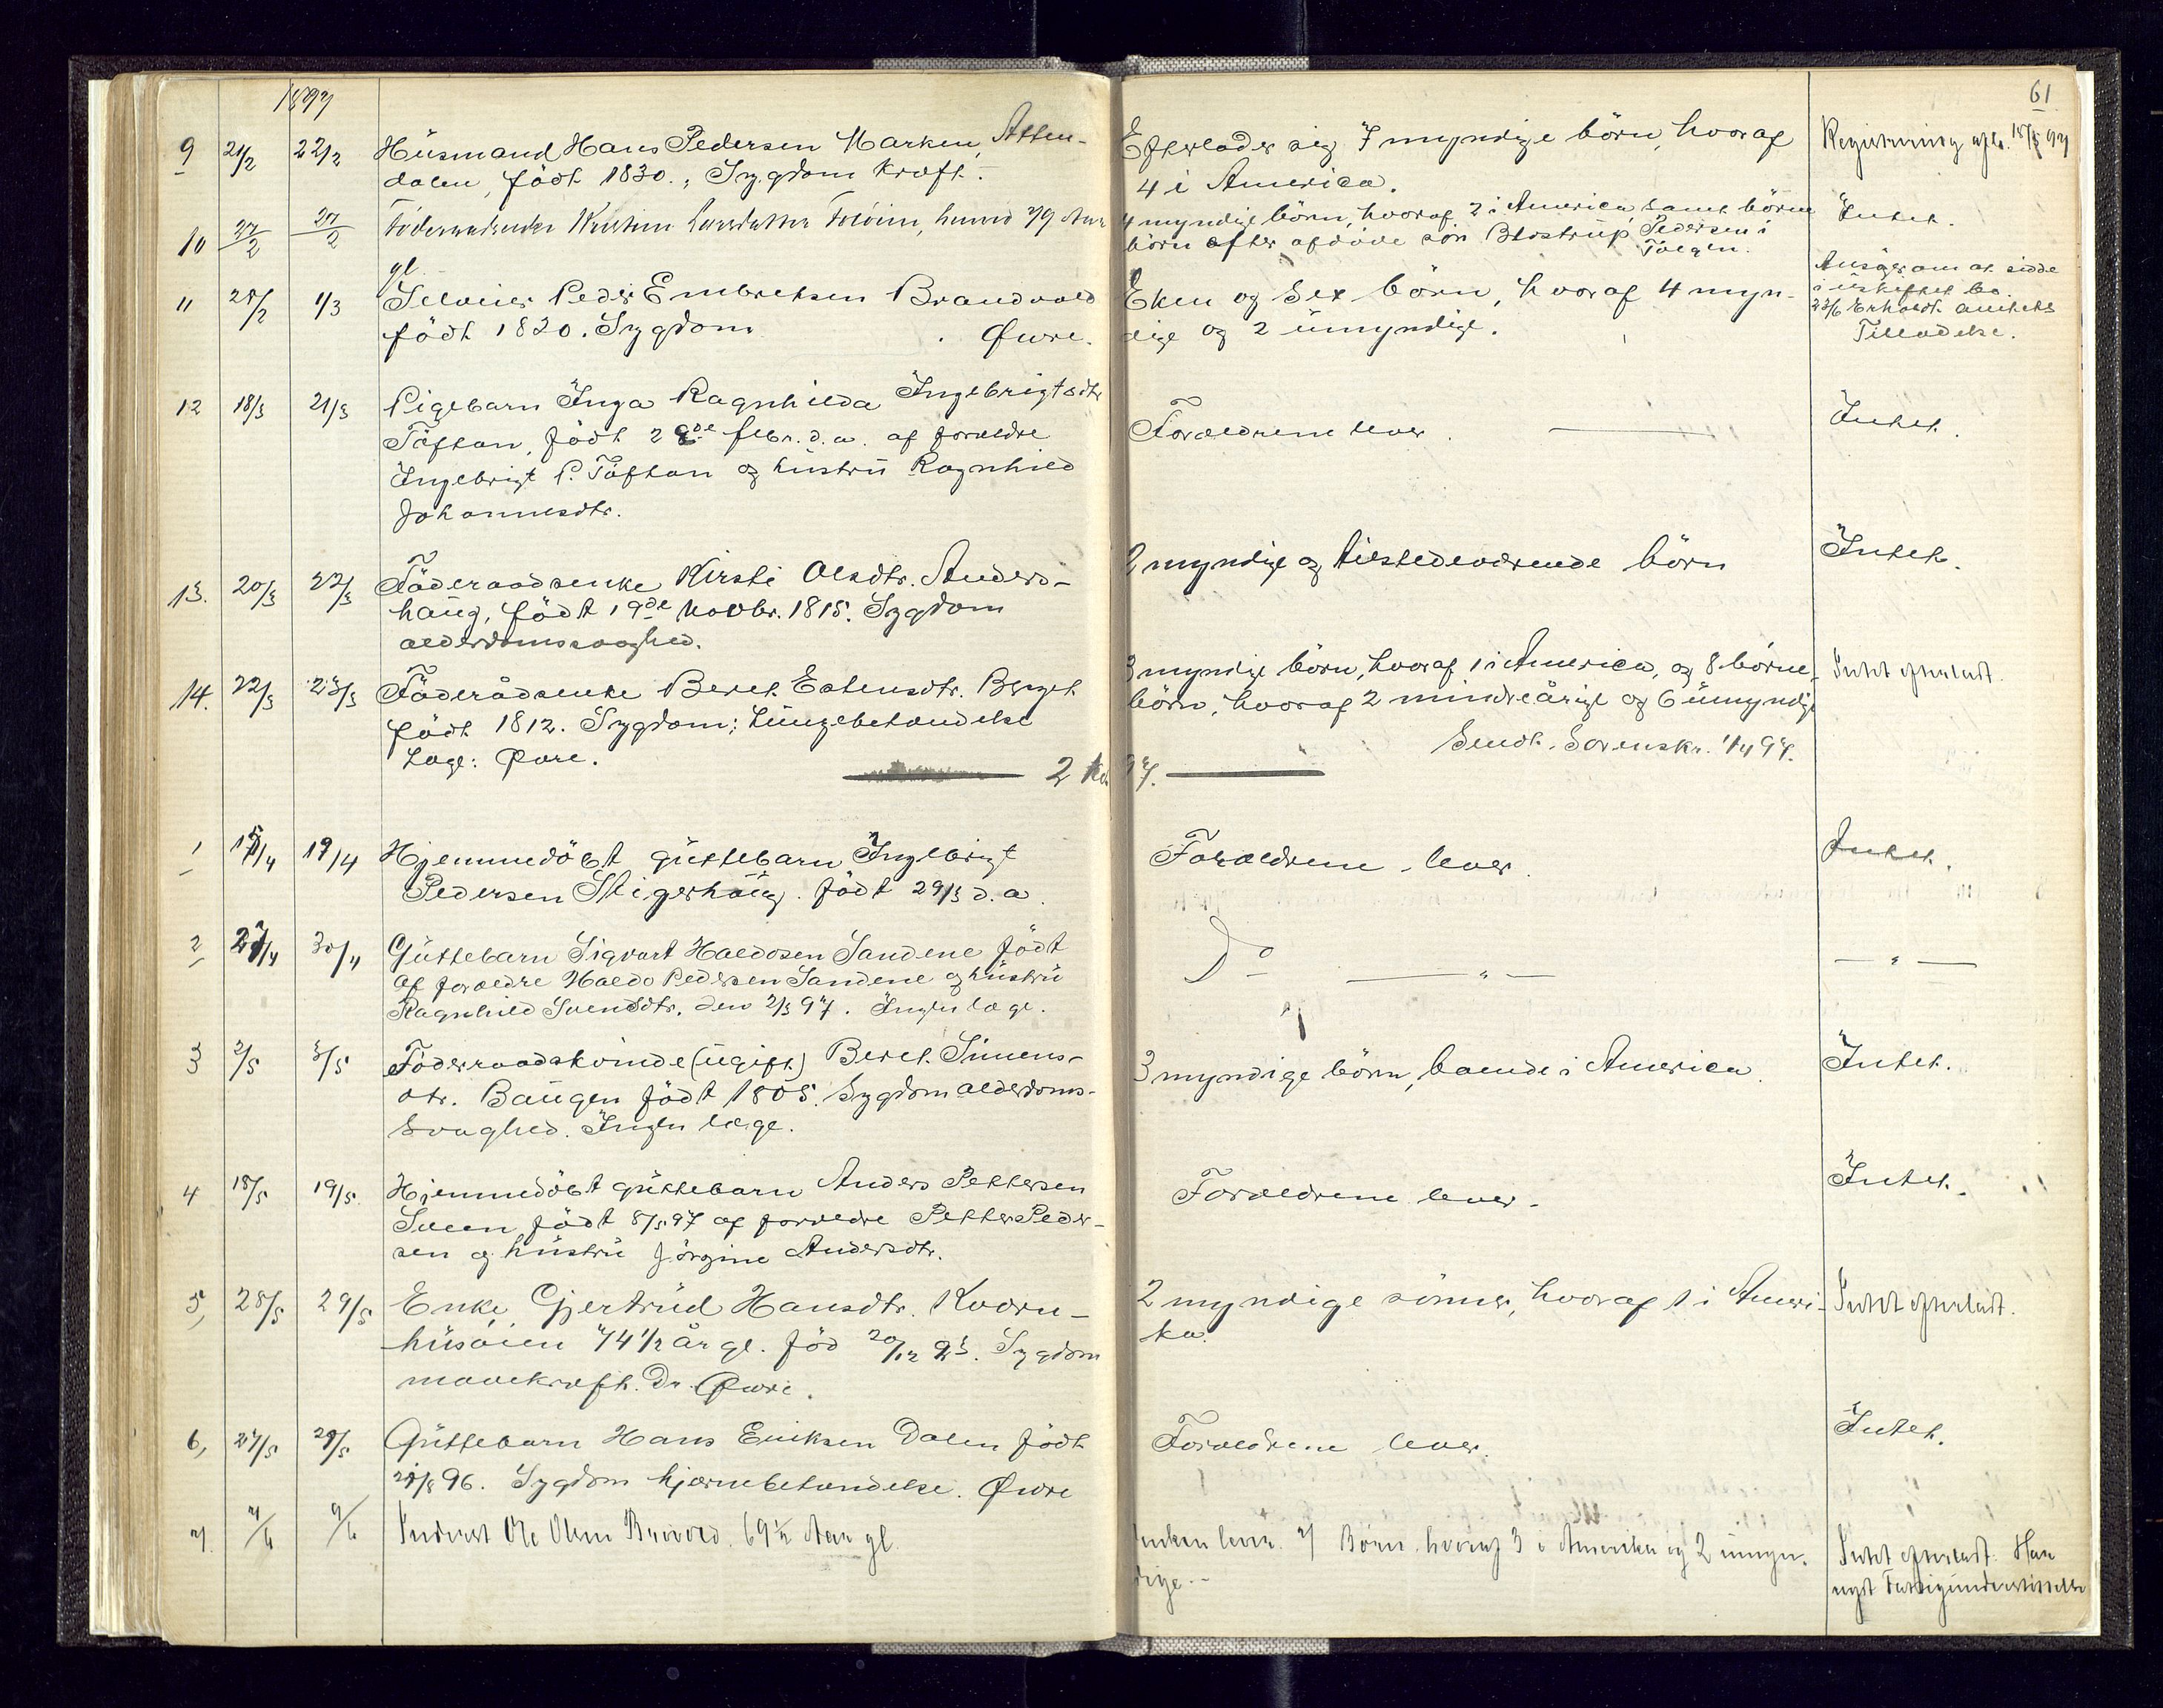 1897
61
9 21/2 22/2 Husmand Hans Pedersen Marken, Atten-
dalen, födt 1830. Sygdom Kræft.
Efterlader sig 7 myndige börn, hvoraf
4 i America.
Registrering
10 27/2 27/2 Föderaadsenke Kristine Larsdatter 79 Aar
gl.
4 myndige börn, hvoraf 2 i America samt börne
börn efter afdöde sön Pedersen i
Tolgen.
Intet.
11 28/2 1/3 Selveier Peder Embretsen Brandvold
födt 1820. Sygdom Øwre.
Eken og Sex börn, hvoraf 4 myn-
dige og 2 umyndige.
Ansöger om at sidde
i uskiftet bo.
22/6 Erholdt amtets
Tilladelse.
12 18/3 21/3 Pigebarn Inga Ragnhilda Ingebrigtsdtr
Töftan, födt febr. d.a. af forældre
Ingebrigt P. Töftan og hustru Ragnhild
Johannesdtr.
Forældrene lever.
Intet.
13. 20/3 22/3 Föderaadsenke Kirsti Olsdtr. Anders-
haug, födt 19de Novbr. 1815. Sygdom
alderdomssvaghed.
2 myndige og tilstedeværende börn
Intet.
14. 22/3 23/3 Föderådsenke Beret Estensdtr. Berget
födt 1812. Sygdom: Lungebetændelse
Læge: Øvre.
3 myndige börn, hvoraf 1 i America, og 8 börne-
börn, hvoraf 2 mindreårige og 6 umyndige
Sendt. Sorenskr. 1/4 97.
Intet efterladt.
2 Kv. 97.
1 19/4 Hjemmedöbt guttebarn Ingebrigt
Pedersen Stigershaug. födt 29/3 d.a.
Forældrene lever.
Intet.
2 30/4 Guttebarn Sigvart Haldosen Sandene födt
af forældre Haldo Pedersen Sandene og hustru
Ragnhild Svendsdtr. den 2/3 97. Ingen læge.
Do — " —
— " —
3 2/5 3/5 Föderaadskvinde (ugift) Beret Simens-
dtr. Baugen födt 1805. Sygdom alderdoms-
svaghed. Ingen læge.
3 myndige börn, baende i America.
Intet.
4 18/5 19/5. Hjemmedöbt guttebarn Anders Pettersen
Sveen, födt 8/5 97 af forældre Petter Peder-
sen og hustru Jörgine Andersdtr.
Forældrene lever.
Intet.
5, 28/5 29/5 Enke Gjertrud Hansdtr. Kværn-
husöien 74 1/2 år gl. föd 20/12 Sygdom
mavekræft. Dr. Øwre.
2 myndige sönner, hvoraf 1 i Ameri-
ka.
Intet efterladt.
6, 27/5 Guttebarn Hans Eriksen Dalen födt
/8 96. Sygdom hjernebetændelse. Øvre
Forældrene lever.
Intet.
7. 7/6 9/6 Inderst Ole Olsen 69 1/2 Aar gl.
Enken lever. 7 Börn. hvoraf 3 i Amerika og 2 umyn-
dige.
Intet efterladt. Har
nydt Fattigunderstöttelse